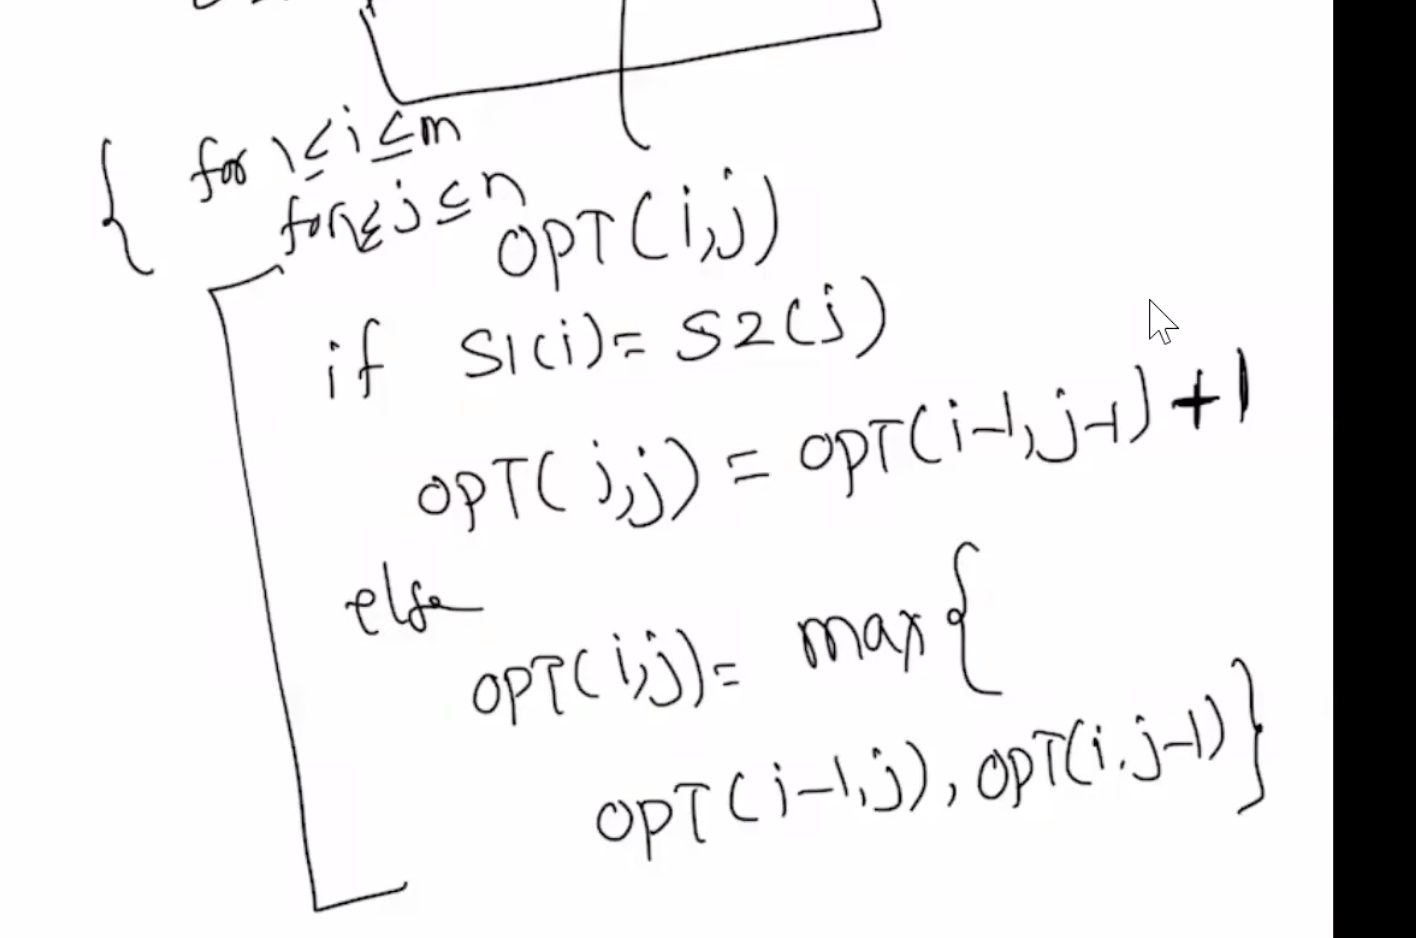 for 1≤i≤m
for 1≤j≤n
OPT(i,j)
if S1(i)= S2(j)
OPT(i,j) = OPT(i-1,j-1)+1
else
OPT(i,j)= max{
OPT(i-1,j), OPT(i,j-1)}